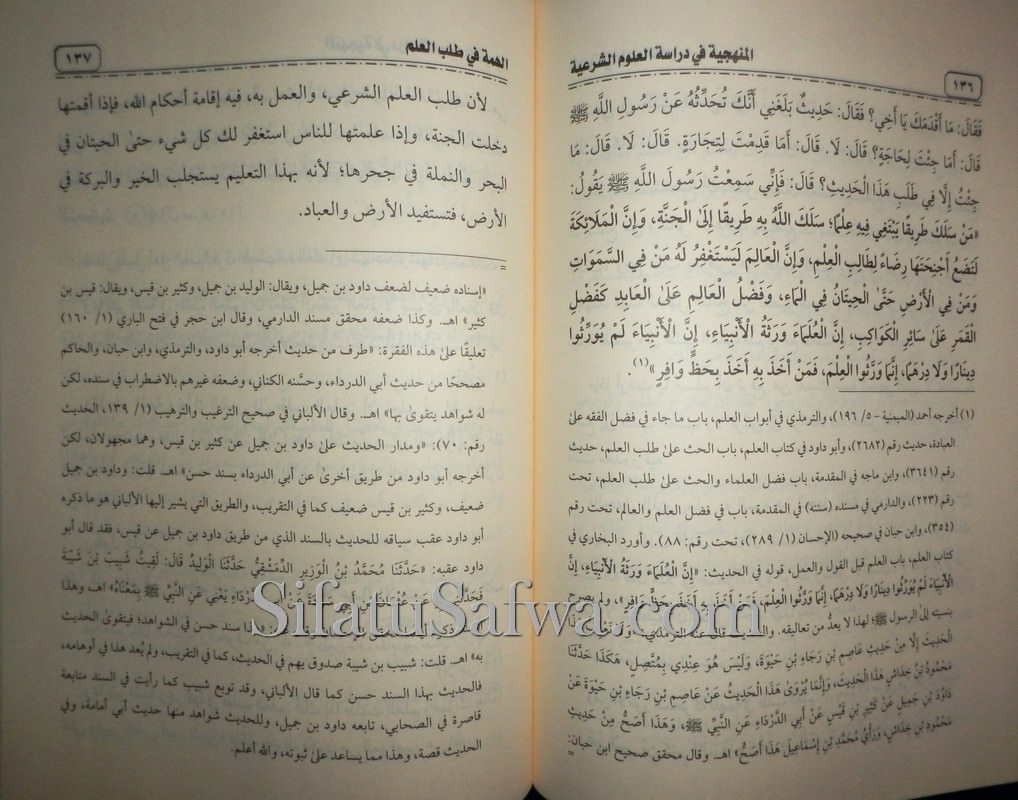 المنهجية في دراسة العلوم الشرعية
١٣٦
فَقَالَ: مَا أَقْدَمَكَ يَا أَخِي؟ فَقَالَ: حَدِيثٌ بَلَغَنِي أَنَّكَ تُحَدِّثُهُ عَنْ رَسُولِ اللَّهِ ﷺ
قَالَ: أَمَا جِئْتَ لِحَاجَةٍ؟ قَالَ: لَا. قَالَ: أَمَا قَدِمْتَ لِتِجَارَةٍ. قَالَ: لَا. قَالَ: مَا
جِئْتُ إِلَّا فِي طَلَبِ هَذَا الْحَدِيثِ؟ قَالَ: فَإِنِّي سَمِعْتُ رَسُولَ اللَّهِ ﷺ يَقُولُ:
«مَنْ سَلَكَ طَرِيقًا يَبْتَغِي فِيهِ عِلْمًا؛ سَلَكَ اللَّهُ بِهِ طَرِيقًا إِلَىٰ الْجَنَّةِ، وَإِنَّ الْمَلَائِكَةَ
لَتَضَعُ أَجْنِحَتَهَا رِضَاءً لِطَالِبِ الْعِلْمِ، وَإِنَّ الْعَالِمَ لَيَسْتَغْفِرُ لَهُ مَنْ فِي السَّمَوَاتِ
وَمَنْ فِي الْأَرْضِ حَتَّىٰ الْحِيتَانُ فِي الْمَاءِ، وَفَضْلُ الْعَالِمِ عَلَىٰ الْعَابِدِ كَفَضْلِ
الْقَمَرِ عَلَىٰ سَائِرِ الْكَوَاكِبِ، إِنَّ الْعُلَمَاءَ وَرَثَةُ الْأَنْبِيَاءِ، إِنَّ الْأَنْبِيَاءَ لَمْ يُوَرِّثُوا
دِينَارًا وَلَا دِرْهَمًا، إِنَّمَا وَرَّثُوا الْعِلْمَ، فَمَنْ أَخَذَ بِهِ أَخَذَ بِحَظٍّ وَافِرٍ»(١).
(١) أخرجه أحمد (الميمنية - ٥/ ١٩٦)، والترمذي في أبواب العلم، باب ما جاء في فضل الفقه علىٰ
العبادة، حديث رقم (٢٦٨٢)، وأبو داود في كتاب العلم، باب الحث علىٰ طلب العلم، حديث
رقم (٣٦٤١)، وابن ماجه في المقدمة، باب فضل العلماء والحث علىٰ طلب العلم، تحت
رقم (٢٢٣)، والدارمي في مسنده (سننه) في المقدمة، باب في فضل العلم والعالم، تحت رقم
(٣٥٤)، وابن حبان في صحيحه (الإحسان (١/ ٢٨٩)، تحت رقم: ٨٨). وأورد البخاري في
كتاب العلم، باب العلم قبل القول والعمل، قوله في الحديث: «إِنَّ الْعُلَمَاءَ وَرَثَةُ الْأَنْبِيَاءِ، إِنَّ
الْأَنْبِيَاءَ لَمْ يُوَرِّثُوا دِينَارًا وَلَا دِرْهَمًا، إِنَّمَا وَرَّثُوا الْعِلْمَ، فَمَنْ أَخَذَ بِهِ أَخَذَ بِحَظٍّ وَافِرٍ»، ولم يصرح
بنسبته إلى الرسول ﷺ؛ لهذا لا يعدُّ من تعاليقه. والحديث قال عنه الترمذي: «وَلَا نَعْرِفُ هَذَا
الْحَدِيثَ إِلَّا مِنْ حَدِيثِ عَاصِمِ بْنِ رَجَاءِ بْنِ حَيْوَةَ، وَلَيْسَ هُوَ عِنْدِي بِمُتَّصِلٍ، هَكَذَا حَدَّثَنَا
مَحْمُودُ بْنُ خِدَاشٍ هَذَا الْحَدِيثَ، وَإِنَّمَا يُرْوَىٰ هَذَا الْحَدِيثُ عَنْ عَاصِمِ بْنِ رَجَاءِ بْنِ حَيْوَةَ عَنْ
دَاوُدَ بْنِ جَمِيلٍ عَنْ كَثِيرِ بْنِ قَيْسٍ عَنْ أَبِي الدَّرْدَاءِ عَنِ النَّبِيِّ ﷺ، وَهَذَا أَصَحُّ مِنْ حَدِيثِ
مَحْمُودِ بْنِ خِدَاشٍ، وَرَأْيُ مُحَمَّدِ بْنِ إِسْمَاعِيلَ هَذَا أَصَحُّ» اهـ. وقال محقق صحيح ابن حبان: =
الهمة في طلب العلم
١٣٧
لأن طلب العلم الشرعي، والعمل به، فيه إقامة أحكام الله، فإذا أقمتها
دخلت الجنة، وإذا علمتها للناس استغفر لك كل شيء حتىٰ الحيتان في
البحر والنملة في جحرها؛ لأنه بهذا التعليم يستجلب الخير والبركة في
الأرض، فتستفيد الأرض والعباد.
=
«إسناده ضعيف لضعف داود بن جميل، ويقال: الوليد بن جميل، وكثير بن قيس، ويقال: قيس بن
كثير» اهـ. وكذا ضعفه محقق مسند الدارمي، وقال ابن حجر في فتح الباري (١/ ١٦٠)
تعليقًا علىٰ هذه الفقرة: «طرف من حديث أخرجه أبو داود، والترمذي، وابن حبان، والحاكم
مصححًا من حديث أبي الدرداء، وحسَّنه الكناني، وضعفه غيرهم بالاضطراب في سنده، لكن
له شواهد يتقوىٰ بها» اهـ. وقال الألباني في صحيح الترغيب والترهيب (١/ ١٣٩، الحديث
رقم: ٧٠): «ومدار الحديث علىٰ داود بن جميل عن كثير بن قيس، وهما مجهولان، لكن
أخرجه أبو داود من طريق أخرىٰ عن أبي الدرداء بسند حسن» اهـ. قلت: وداود بن جميل
ضعيف، وكثير بن قيس ضعيف كما في التقريب، والطريق التي يشير إليها الألباني هو ما ذكره
أبو داود عقب سياقه للحديث بالسند الذي من طريق داود بن جميل عن قيس، فقد قال أبو
داود عقبه: «حَدَّثَنَا مُحَمَّدُ بْنُ الْوَزِيرِ الدِّمَشْقِيُّ حَدَّثَنَا الْوَلِيدُ قَالَ: لَقِيتُ شَبِيبَ بْنَ شَيْبَةَ
فَحَدَّثَنِي بِهِ عَنْ عُثْمَانَ بْنِ أَبِي سَوْدَةَ عَنْ أَبِي الدَّرْدَاءِ يَعْنِي عَنِ النَّبِيِّ ﷺ بِمَعْنَاهُ» اهـ وهذا
هذا سند حسن في الشواهد؛ فيتقوىٰ الحديث
به» اهـ. قلت: شبيب بن شيبة صدوق يهم في الحديث، كما في التقريب، ولم يُعد هذا في أوهامه،
فالحديث بهذا السند حسن كما قال الألباني، وقد توبع شبيب كما رأيت في السند متابعة
قاصرة في الصحابي، تابعه داود بن جميل، وللحديث شواهد منها حديث أبي أمامة، وفي
الحديث قصة، وهذا مما يساعد علىٰ ثبوته، والله أعلم.
SifatuSafwa.com